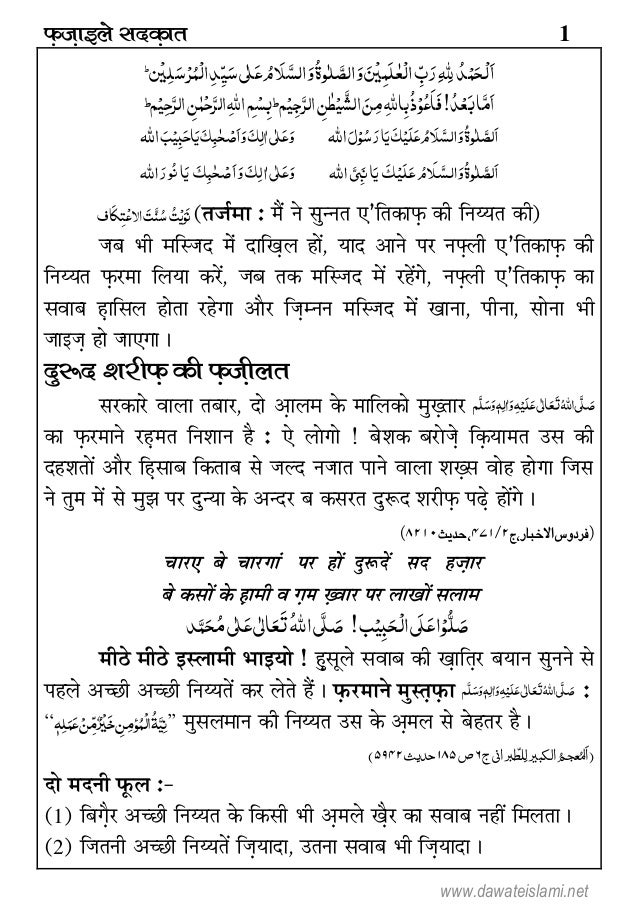 फ़ज़ाइले सदक़ात 1
اَلْحَمْدُ لِلّٰهِ رَبِّ الْعٰلَمِیْنَ وَ الصَّلٰوةُ وَ السَّلَامُ عَلٰی سَیِّدِ الْمُرْسَلِیْنَ ؕ
اَمَّا بَعْدُ! فَاَعُوْذُ بِاللّٰهِ مِنَ الشَّیْطٰنِ الرَّجِیْمِ ؕ بِسْمِ اللّٰهِ الرَّحْمٰنِ الرَّحِیْمِ ؕ
اَلصَّلٰوةُ وَ السَّلَامُ عَلَیْكَ یَا رَسُوْلَ اللہ وَعَلٰی اٰلِكَ وَ اَصْحٰبِكَ یَا حَبِیْبَ اللہ
اَلصَّلٰوةُ وَ السَّلَامُ عَلَیْكَ یَا نَبِیَّ اللہ وَعَلٰی اٰلِكَ وَ اَصْحٰبِكَ یَا نُوْرَ اللہ
نَوَیْتُ سُنَّتَ الاِعْتِكَاف (तर्जमा : मैं ने सुन्नत ए'तिकाफ़ की निय्यत की)
जब भी मस्जिद में दाख़िल हों, याद आने पर नफ़्ली ए'तिकाफ़ की
निय्यत फ़रमा लिया करें, जब तक मस्जिद में रहेंगे, नफ़्ली ए'तिकाफ़ का
सवाब ह़ासिल होता रहेगा और ज़िम्नन मस्जिद में खाना, पीना, सोना भी
जाइज़ हो जाएगा ।
दुरूद शरीफ़ की फ़ज़ीलत
सरकारे वाला तबार, दो आ़लम के मालिको मुख़्तार صَلَّی اللہُ تَعَالٰی عَلَیْہِ وَاٰلِہٖ وَسَلَّم
का फ़रमाने रह़मत निशान है : ऐ लोगो ! बेशक बरोज़े क़ियामत उस की
दहशतों और ह़िसाब किताब से जल्द नजात पाने वाला शख़्स वोह होगा जिस
ने तुम में से मुझ पर दुन्या के अन्दर ब कसरत दुरूद शरीफ़ पढ़े होंगे ।
(فردوس الاخبار،ج۲/۴۷۱،حدیث۸۲۱۰)
चारए बे चारगां पर हों दुरूदें सद हज़ार
बे कसों के ह़ामी व ग़म ख़्वार पर लाखों सलाम
صَلُّوْا عَلَی الْحَبِیْب! صَلَّی اللہُ تَعَالٰی عَلٰی مُحَمَّد
मीठे मीठे इस्लामी भाइयो ! ह़ुसूले सवाब की ख़ात़िर बयान सुनने से
पहले अच्छी अच्छी निय्यतें कर लेते हैं । फ़रमाने मुस्त़फ़ा صَلَّی اللہُ تَعَالٰی عَلَیْہِ وَاٰلِہٖ وَسَلَّم :
“نِیَّةُ الْمُؤْمِنِ خَیْرٌ مِّنْ عَمَلِهٖ” मुसलमान की निय्यत उस के अ़मल से बेहतर है ।
(اَلْمُعجَمُ الكبير لِلطَّبَرانی ج۶ ص۱۸۵ حديث ۵۹۴۲)
दो मदनी फूल :-
(1) बिग़ैर अच्छी निय्यत के किसी भी अ़मले ख़ैर का सवाब नहीं मिलता ।
(2) जितनी अच्छी निय्यतें ज़ियादा, उतना सवाब भी ज़ियादा ।
www.dawateislami.net